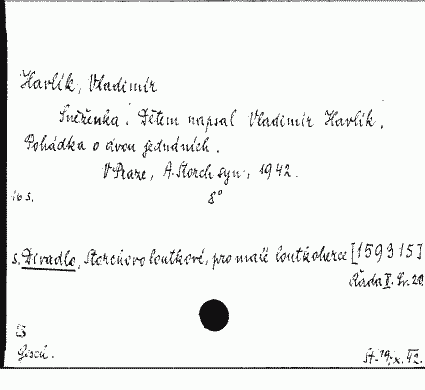 Havlík, Vladimír
Sněženka. Dětem napsal Vladimír Havlík.
Pohádka o dvou jednáních.
V Praze, A. Storch syn, 1942.
16 s. 8°
s. Divadlo, Storchovo loutkové, pro malé loutkoherce [159315]
Řada II. Sv. 20
St. 19. X. 42.